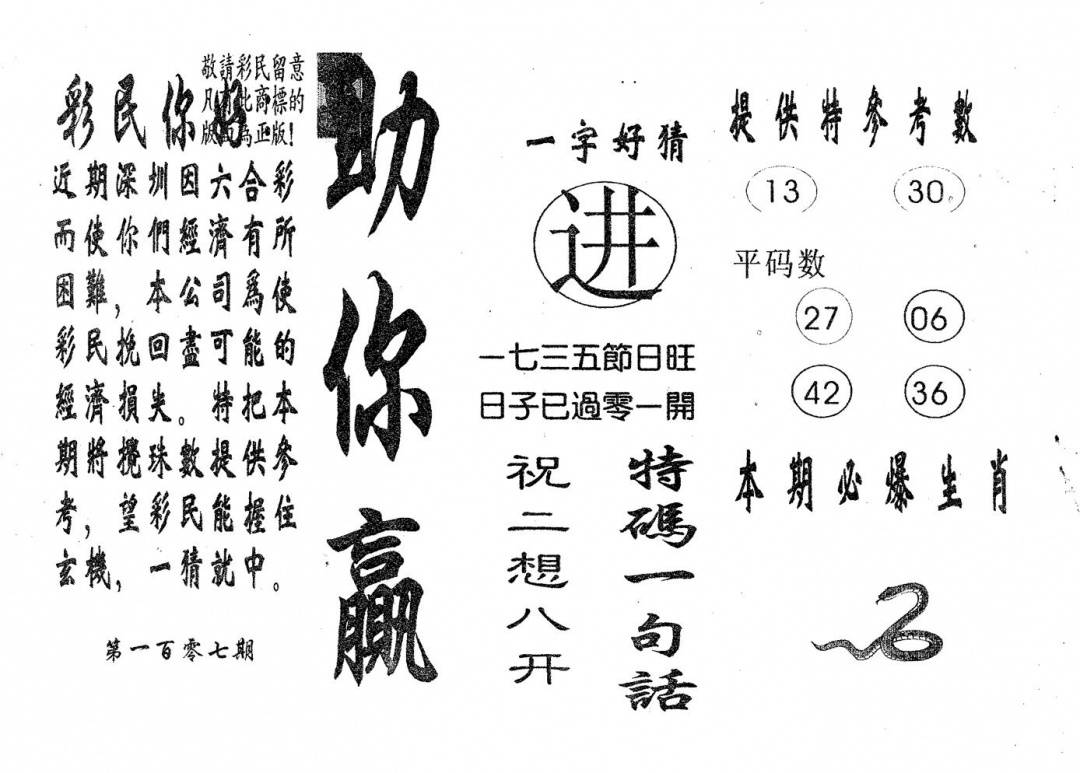 敬請彩民留意
凡有此商標的
版面為正版!
彩民你好
近期深圳因六合彩
而使你們經濟有所
困難,本公司爲使
彩民挽回盡可能的
經濟損失。特把本
期將攪珠數提供參
考,望彩民能握住
玄機,一猜就中。
第一百零七期
助你贏
一字好猜
进
一七三五節日旺
日子已過零一開
祝二想八开
特碼一句話
提供特參考數
13 30
平码数
27 06
42 36
本期必爆生肖